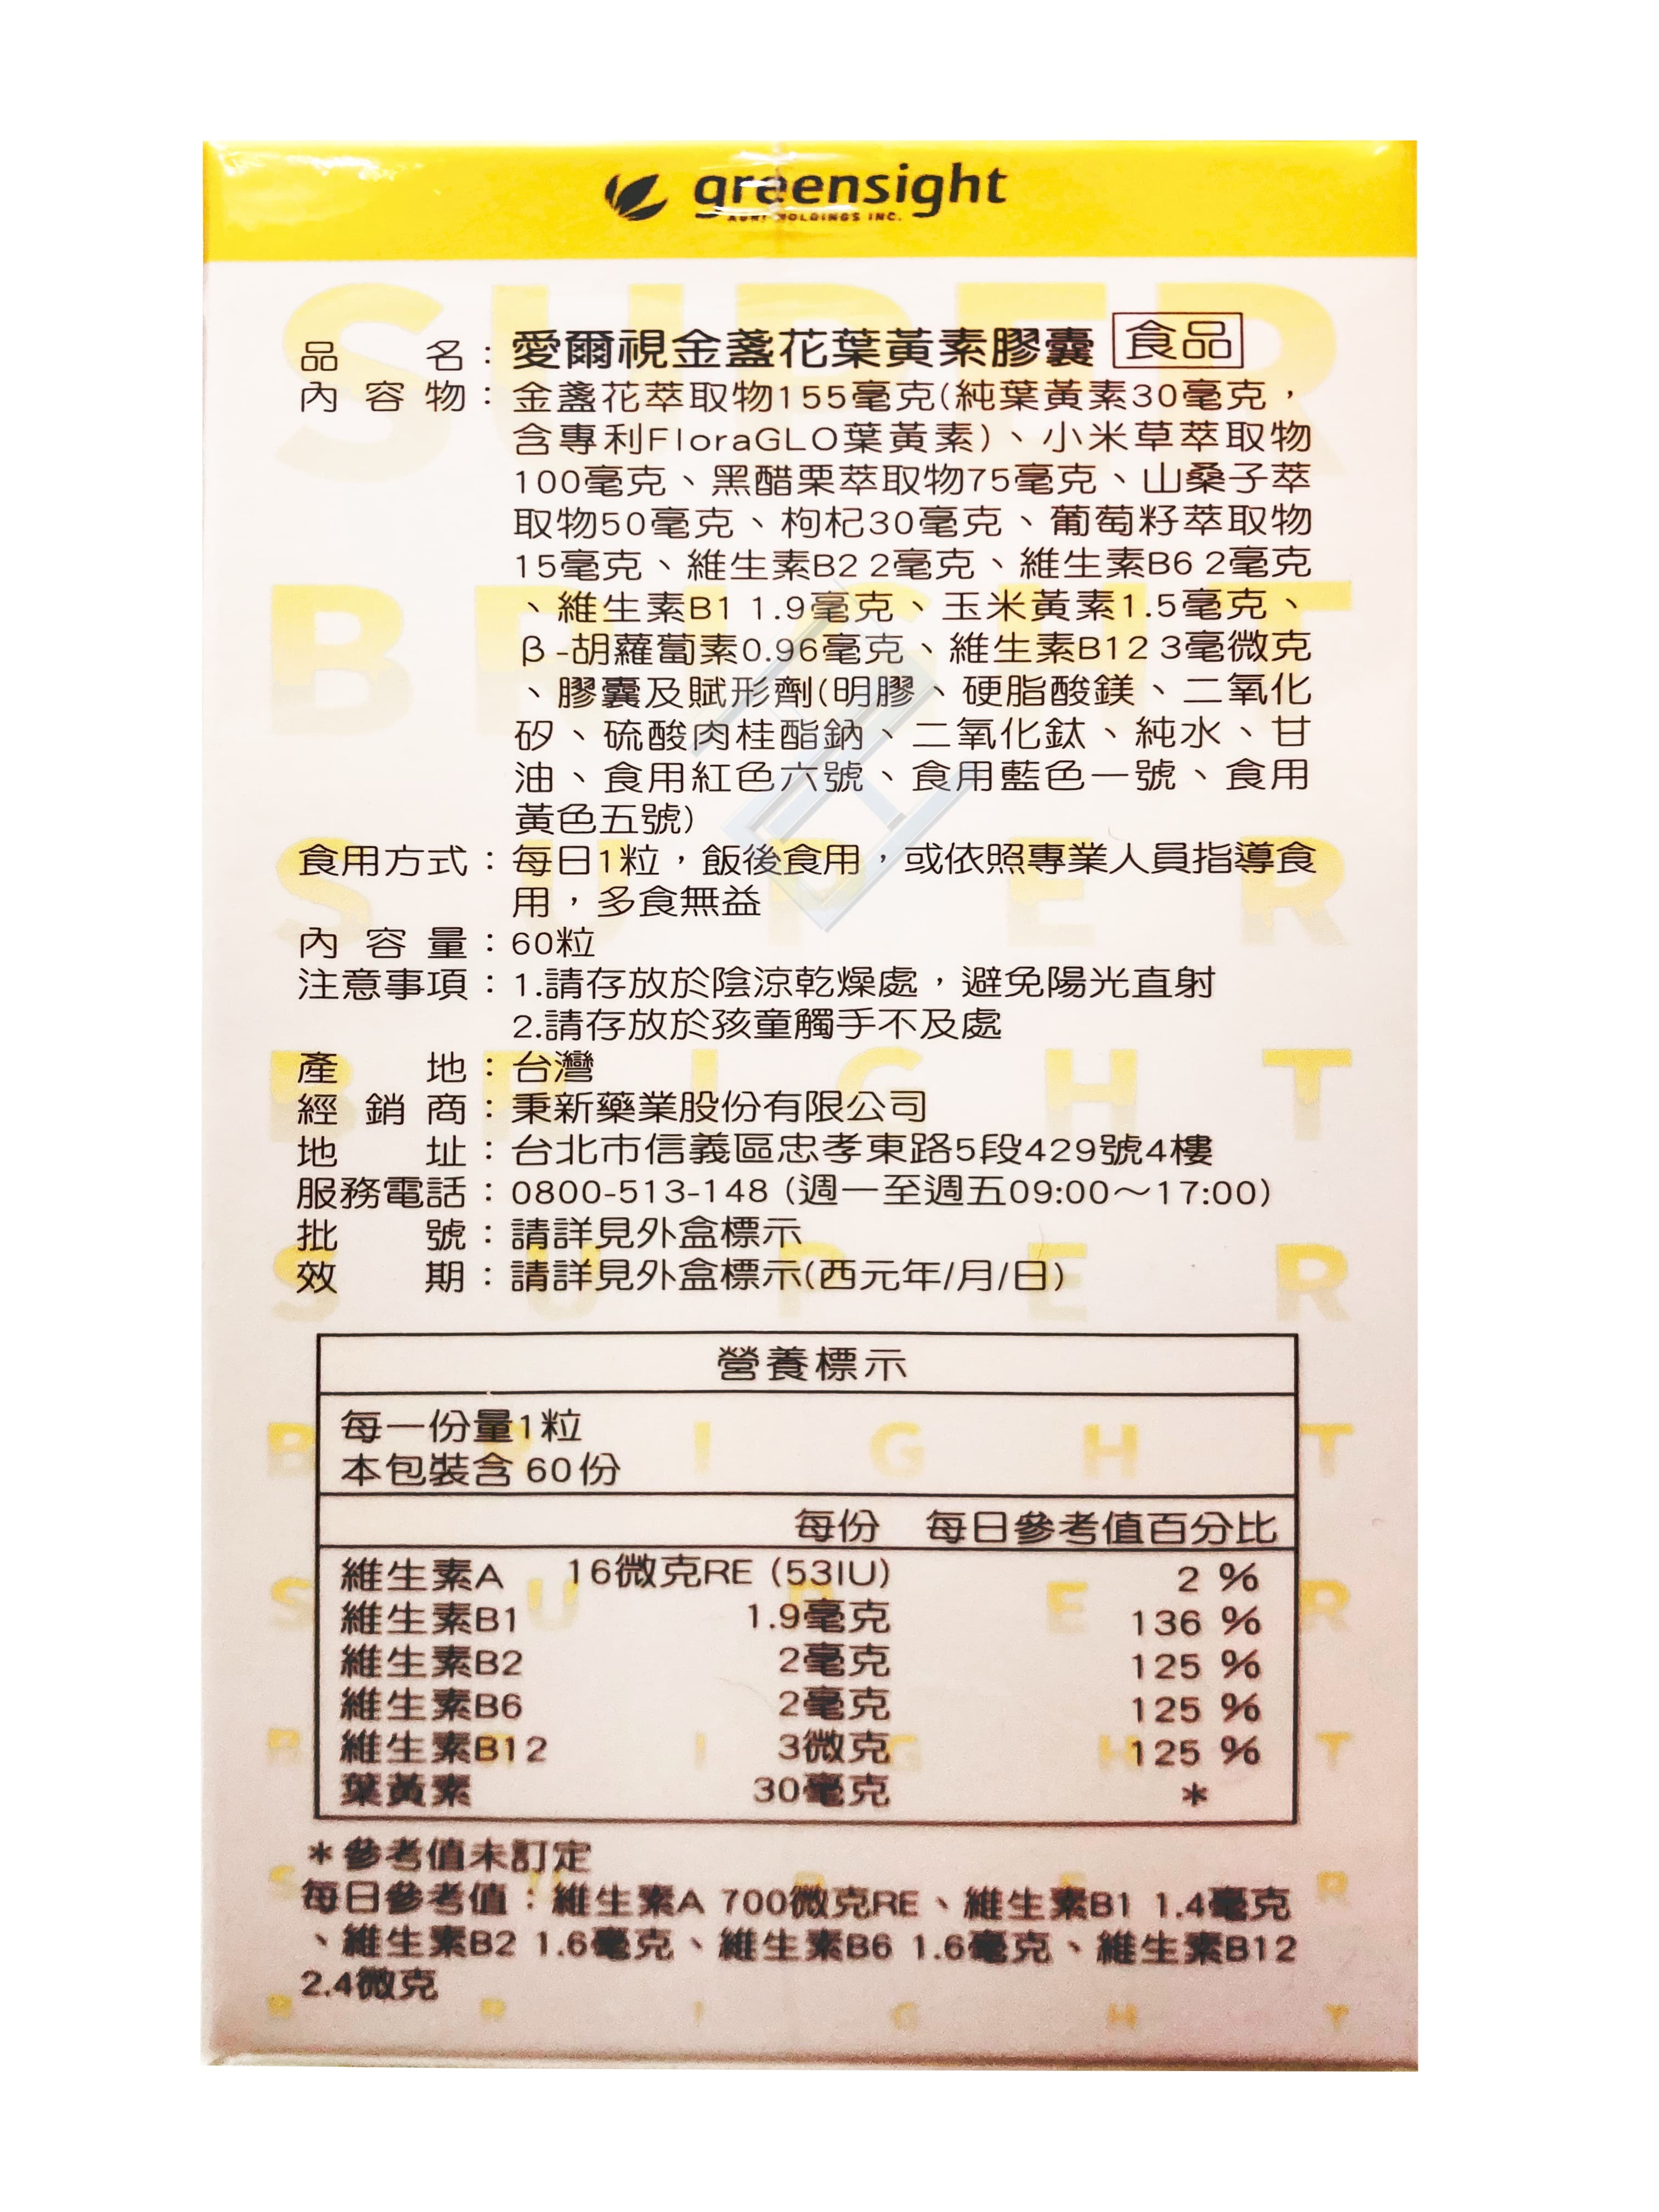 greensight
AGRI HOLDINGS INC.
品名：愛爾視金盞花葉黃素膠囊 食品
內容物：金盞花萃取物155毫克(純葉黃素30毫克，
含專利FloraGLO葉黃素)、小米草萃取物
100毫克、黑醋栗萃取物75毫克、山桑子萃
取物50毫克、枸杞30毫克、葡萄籽萃取物
15毫克、維生素B2 2毫克、維生素B6 2毫克
、維生素B1 1.9毫克、玉米黃素1.5毫克、
β-胡蘿蔔素0.96毫克、維生素B12 3毫微克
、膠囊及賦形劑(明膠、硬脂酸鎂、二氧化
矽、硫酸肉桂酯鈉、二氧化鈦、純水、甘
油、食用紅色六號、食用藍色一號、食用
黃色五號)
食用方式：每日1粒，飯後食用，或依照專業人員指導食
用，多食無益
內容量：60粒
注意事項：1.請存放於陰涼乾燥處，避免陽光直射
2.請存放於孩童觸手不及處
產地：台灣
經銷商：秉新藥業股份有限公司
地址：台北市信義區忠孝東路5段429號4樓
服務電話：0800-513-148 (週一至週五09:00～17:00)
批號：請詳見外盒標示
效期：請詳見外盒標示(西元年/月/日)
營養標示
每一份量1粒
本包裝含 60份
每份 每日參考值百分比
維生素A 16微克RE (53IU) 2 %
維生素B1 1.9毫克 136 %
維生素B2 2毫克 125 %
維生素B6 2毫克 125 %
維生素B12 3微克 125 %
葉黃素 30毫克 *
*參考值未訂定
每日參考值：維生素A 700微克RE、維生素B1 1.4毫克
、維生素B2 1.6毫克、維生素B6 1.6毫克、維生素B12
2.4微克
SUPER
BRIGHT
SUPER
BRIGHT
SUPER
BRIGHT
SUPER
BRIGHT
SUPER
BRIGHT